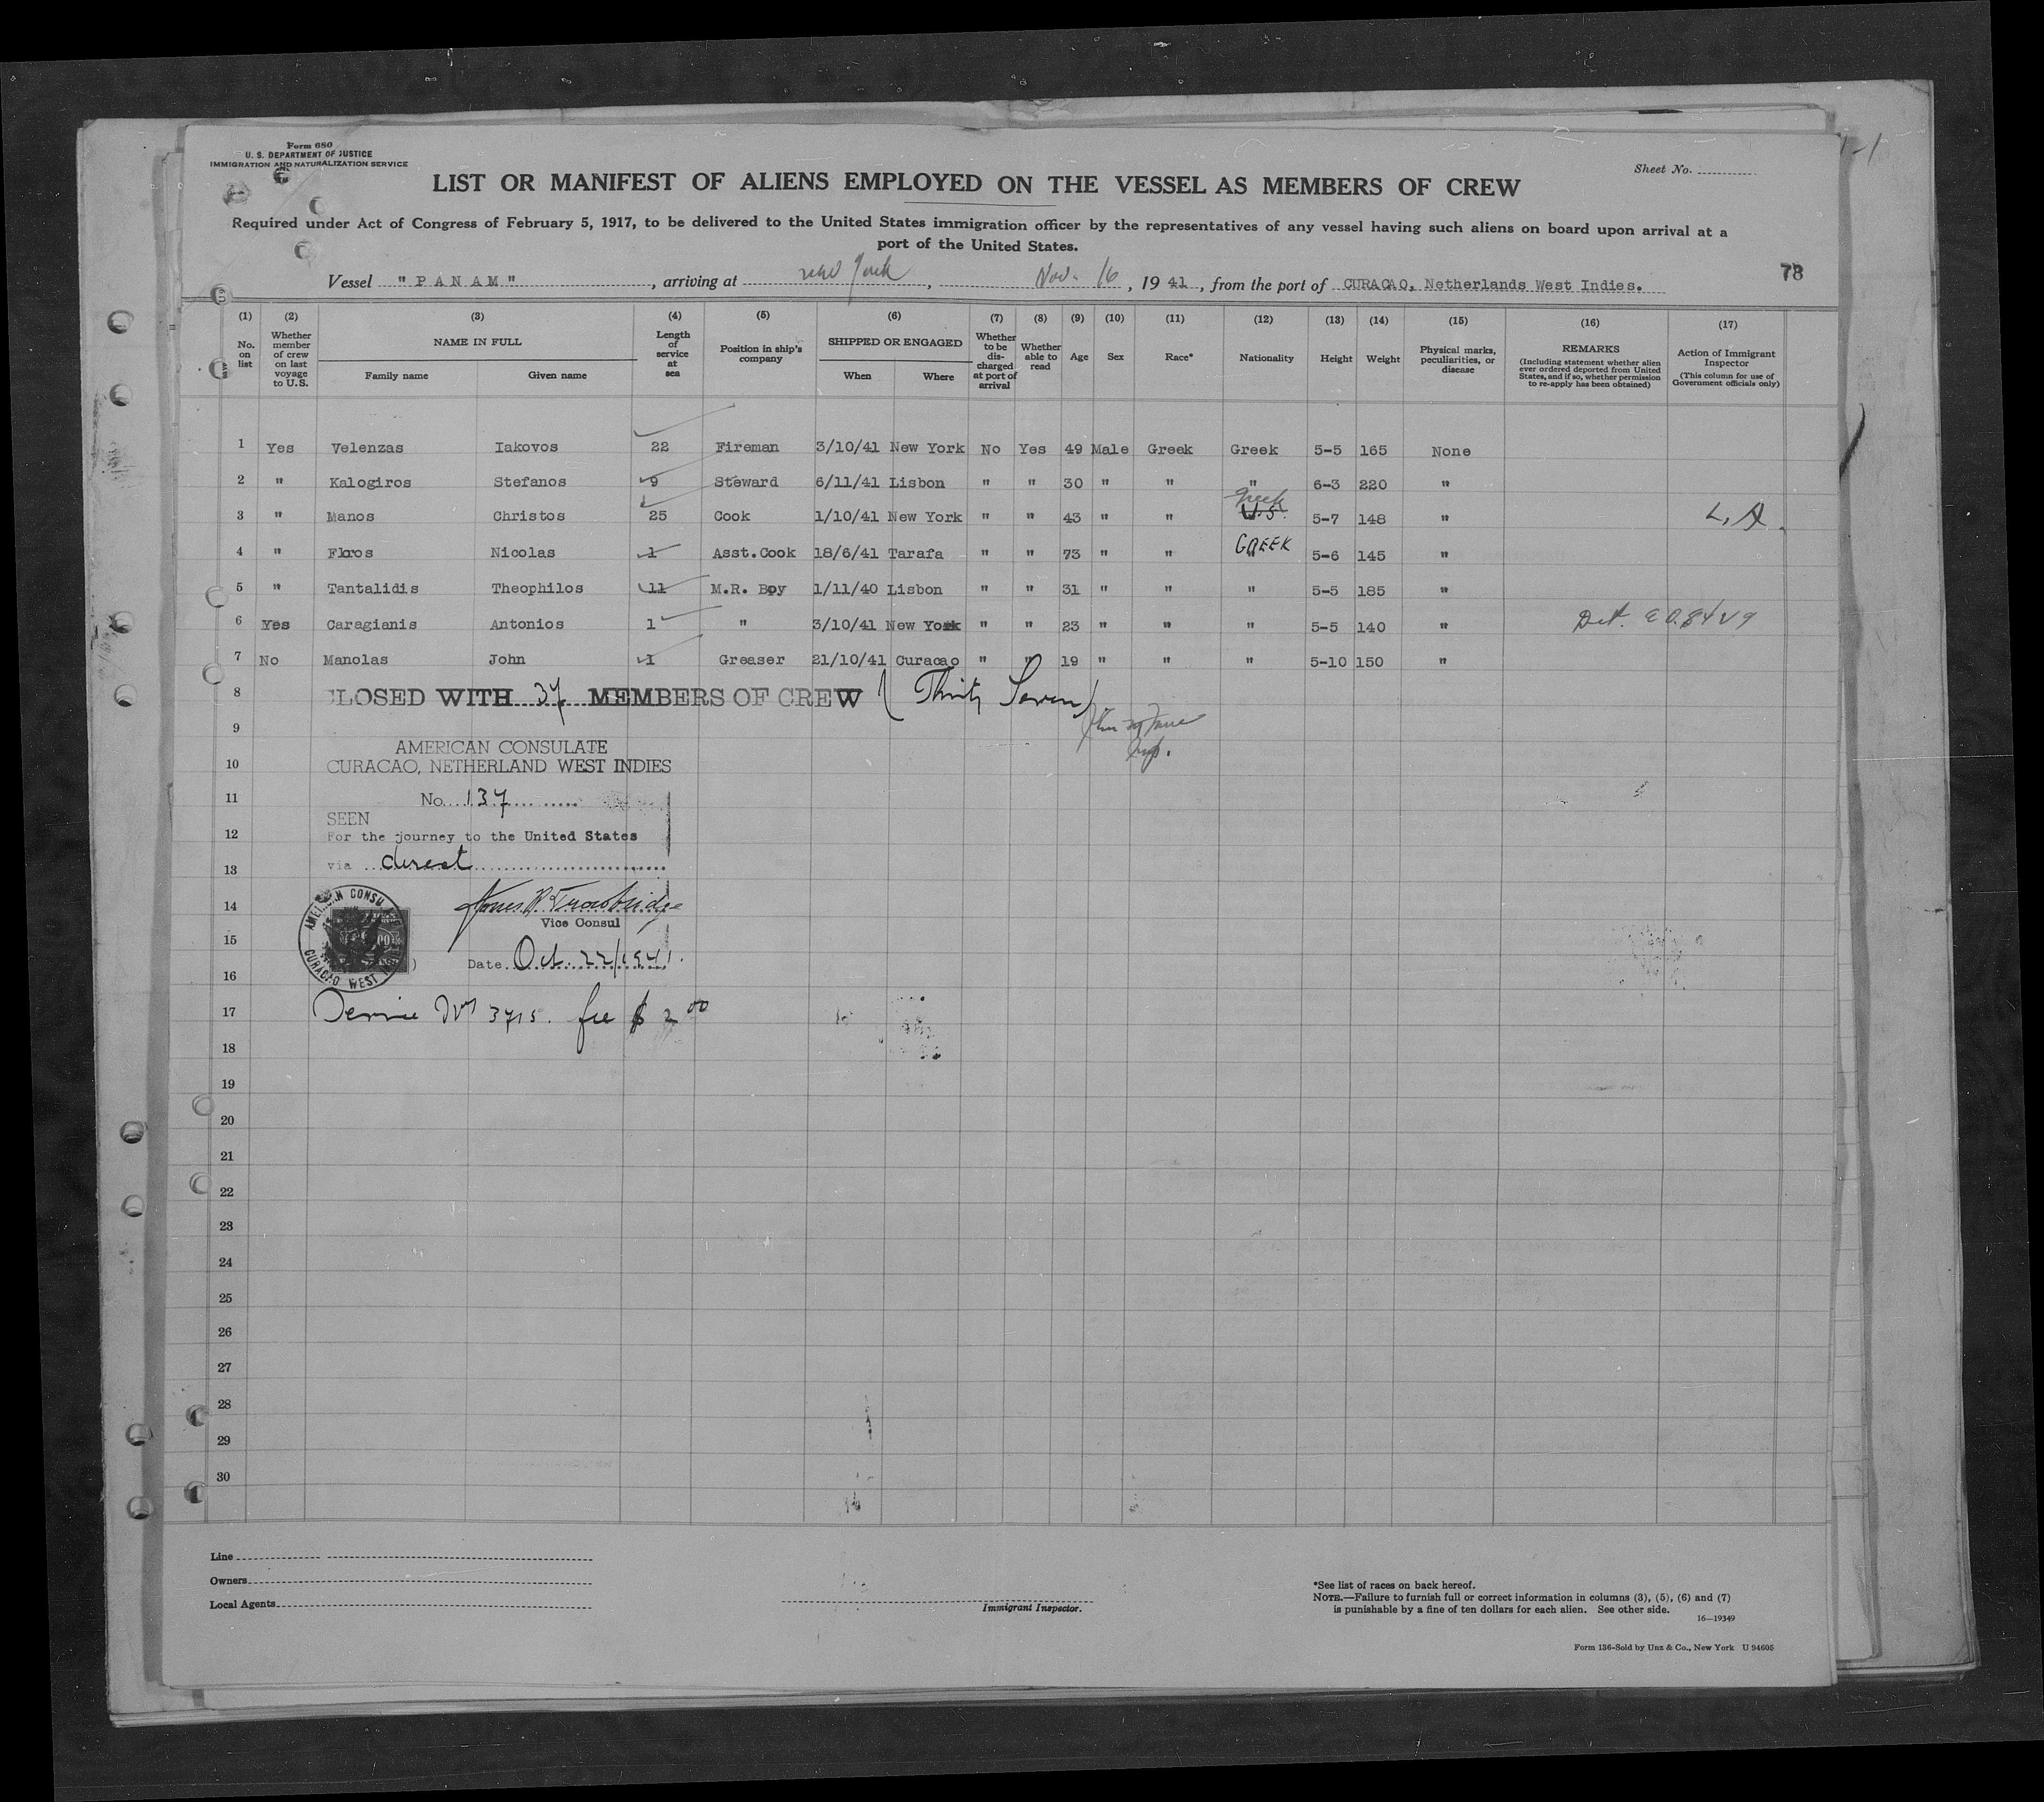 Form 680
U. S. DEPARTMENT OF JUSTICE
IMMIGRATION AND NATURALIZATION SERVICE
Sheet No.
LIST OR MANIFEST OF ALIENS EMPLOYED ON THE VESSEL AS MEMBERS OF CREW
Required under Act of Congress of February 5, 1917, to be delivered to the United States immigration officer by the representatives of any vessel having such aliens on board upon arrival at a
port of the United States.
Vessel "PANAM", arriving at New York, Nov. 16, 1941, from the port of CURACAO, Netherlands West Indies.
78
(1) (2) (3) (4) (5) (6) (7) (8) (9) (10) (11) (12) (13) (14) (15) (16) (17)
No. on list
Whether member of crew on last voyage to U.S.
NAME IN FULL
Family name Given name
Length of service at sea
Position in ship's company
SHIPPED OR ENGAGED
When Where
Whether to be discharged at port of arrival
Whether able to read
Age
Sex
Race*
Nationality
Height
Weight
Physical marks, peculiarities, or disease
REMARKS
(Including statement whether alien ever ordered deported from United States, and if so, whether permission to re-apply has been obtained)
Action of Immigrant Inspector
(This column for use of Government officials only)
1 Yes Velenzas Iakovos 22 Fireman 3/10/41 New York No Yes 49 Male Greek Greek 5-5 165 None
2 " Kalogiros Stefanos 9 Steward 6/11/41 Lisbon " " 30 " " " 6-3 220 "
3 " Manos Christos 25 Cook 1/10/41 New York " " 43 " " U.S. Greek 5-7 148 " L, A.
4 " Floros Nicolas 1 Asst.Cook 18/6/41 Tarafa " " 73 " " GREEK 5-6 145 "
5 " Tantalidis Theophilos 11 M.R. Boy 1/11/40 Lisbon " " 31 " " " 5-5 185 "
6 Yes Caragianis Antonios 1 " 3/10/41 New York " " 23 " " " 5-5 140 " Det.
7 No Manolas John 1 Greaser 21/10/41 Curacao " " 19 " " " 5-10 150 "
8 CLOSED WITH 37 MEMBERS OF CREW (Thirty Seven)
9
AMERICAN CONSULATE
10 CURACAO, NETHERLAND WEST INDIES
11 No. 137
SEEN
12 For the journey to the United States
13 via direct
14 James R Trowbridge
Vice Consul
AMERICAN CONSU
CURACAO WEST
15
Date Oct. 22/1941.
16
17 Service No 3715. fee $ 2 00
18
19
20
21
22
23
24
25
26
27
28
29
30
Line
Owners
Local Agents
Immigrant Inspector.
*See list of races on back hereof.
NOTE.—Failure to furnish full or correct information in columns (3), (5), (6) and (7)
is punishable by a fine of ten dollars for each alien. See other side.
16—19349
Form 136-Sold by Unz & Co., New York U 94605